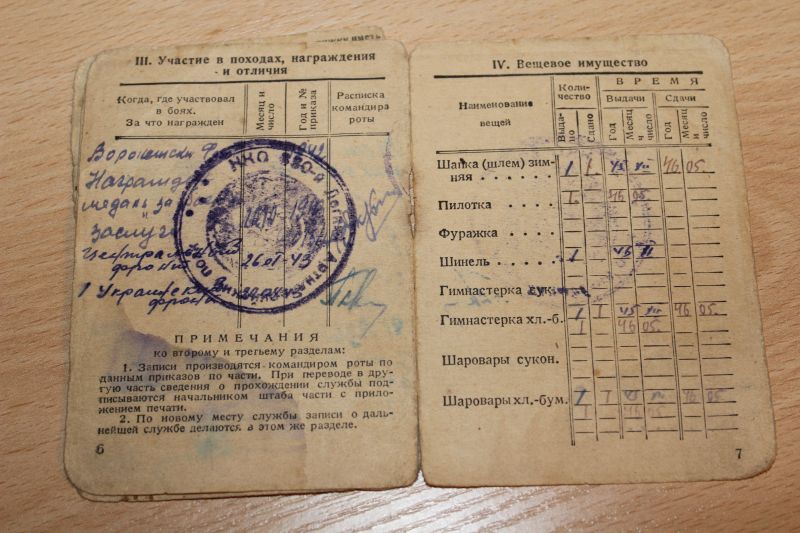 III. Участие в походах, награждения
и отличия
Когда, где участвовал
в боях.
За что награжден
Месяц и
число
Год и №
приказа
Расписка
командира
роты
Воронежски Ф
Награжд
медаль за
заслуги
Центральный
фронт
26.01 43
1 Украинск
фронт
НКО 880-й АРТИЛЛЕРИЙСКИЙ ПО
ПРИМЕЧАНИЯ
ко второму и третьему разделам:
1. Записи производятся командиром роты по
данным приказов по части. При переводе в дру-
гую часть сведения о прохождении службы под-
писываются начальником штаба части с прило-
жением печати.
2. По новому месту службы записи о даль-
нейшей службе делаются в этом же разделе.
6
IV. Вещевое имущество
Наименование
вещей
Коли-
чество
ВРЕМЯ
Выдачи
Сдачи
Выда-
но
Сдано
Год
Месяц
и
число
Год
Месяц
и
число
Шапка (шлем) зим-
няя . . . . . . 1 1 45 XII 46 05.
Пилотка . . . . . 1. 46 05
Фуражка . . . . .
Шинель . . . . . 1 46 II
Гимнастерка сукон.
Гимнастерка хл.-б. 1 1 45 XII 46 05.
46 05.
Шаровары сукон.
Шаровары хл.-бум. 1 1 45 XII 46 05
7